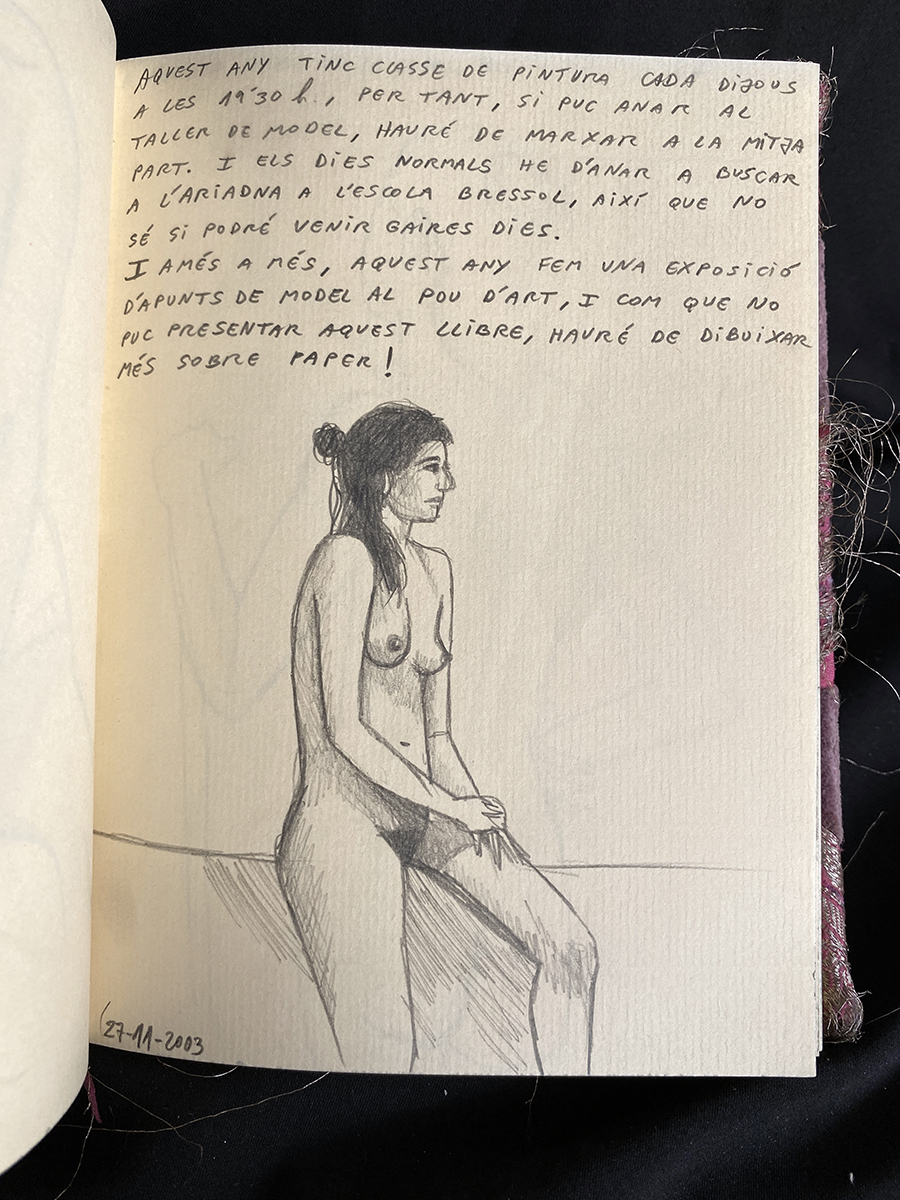 AQUEST ANY TINC CLASSE DE PINTURA CADA DIJOUS
A LES 19'30 h., PER TANT, SI PUC ANAR AL
TALLER DE MODEL, HAURÉ DE MARXAR A LA MITJA
PART. I ELS DIES NORMALS HE D'ANAR A BUSCAR
A L'ARIADNA A L'ESCOLA BRESSOL, AIXÍ QUE NO
SÉ SI PODRÉ VENIR GAIRES DIES.
I AMÉS A MÉS, AQUEST ANY FEM UNA EXPOSICIÓ
D'APUNTS DE MODEL AL POU D'ART, I COM QUE NO
PUC PRESENTAR AQUEST LLIBRE, HAURÉ DE DIBUIXAR
MÉS SOBRE PAPER!
27-11-2003